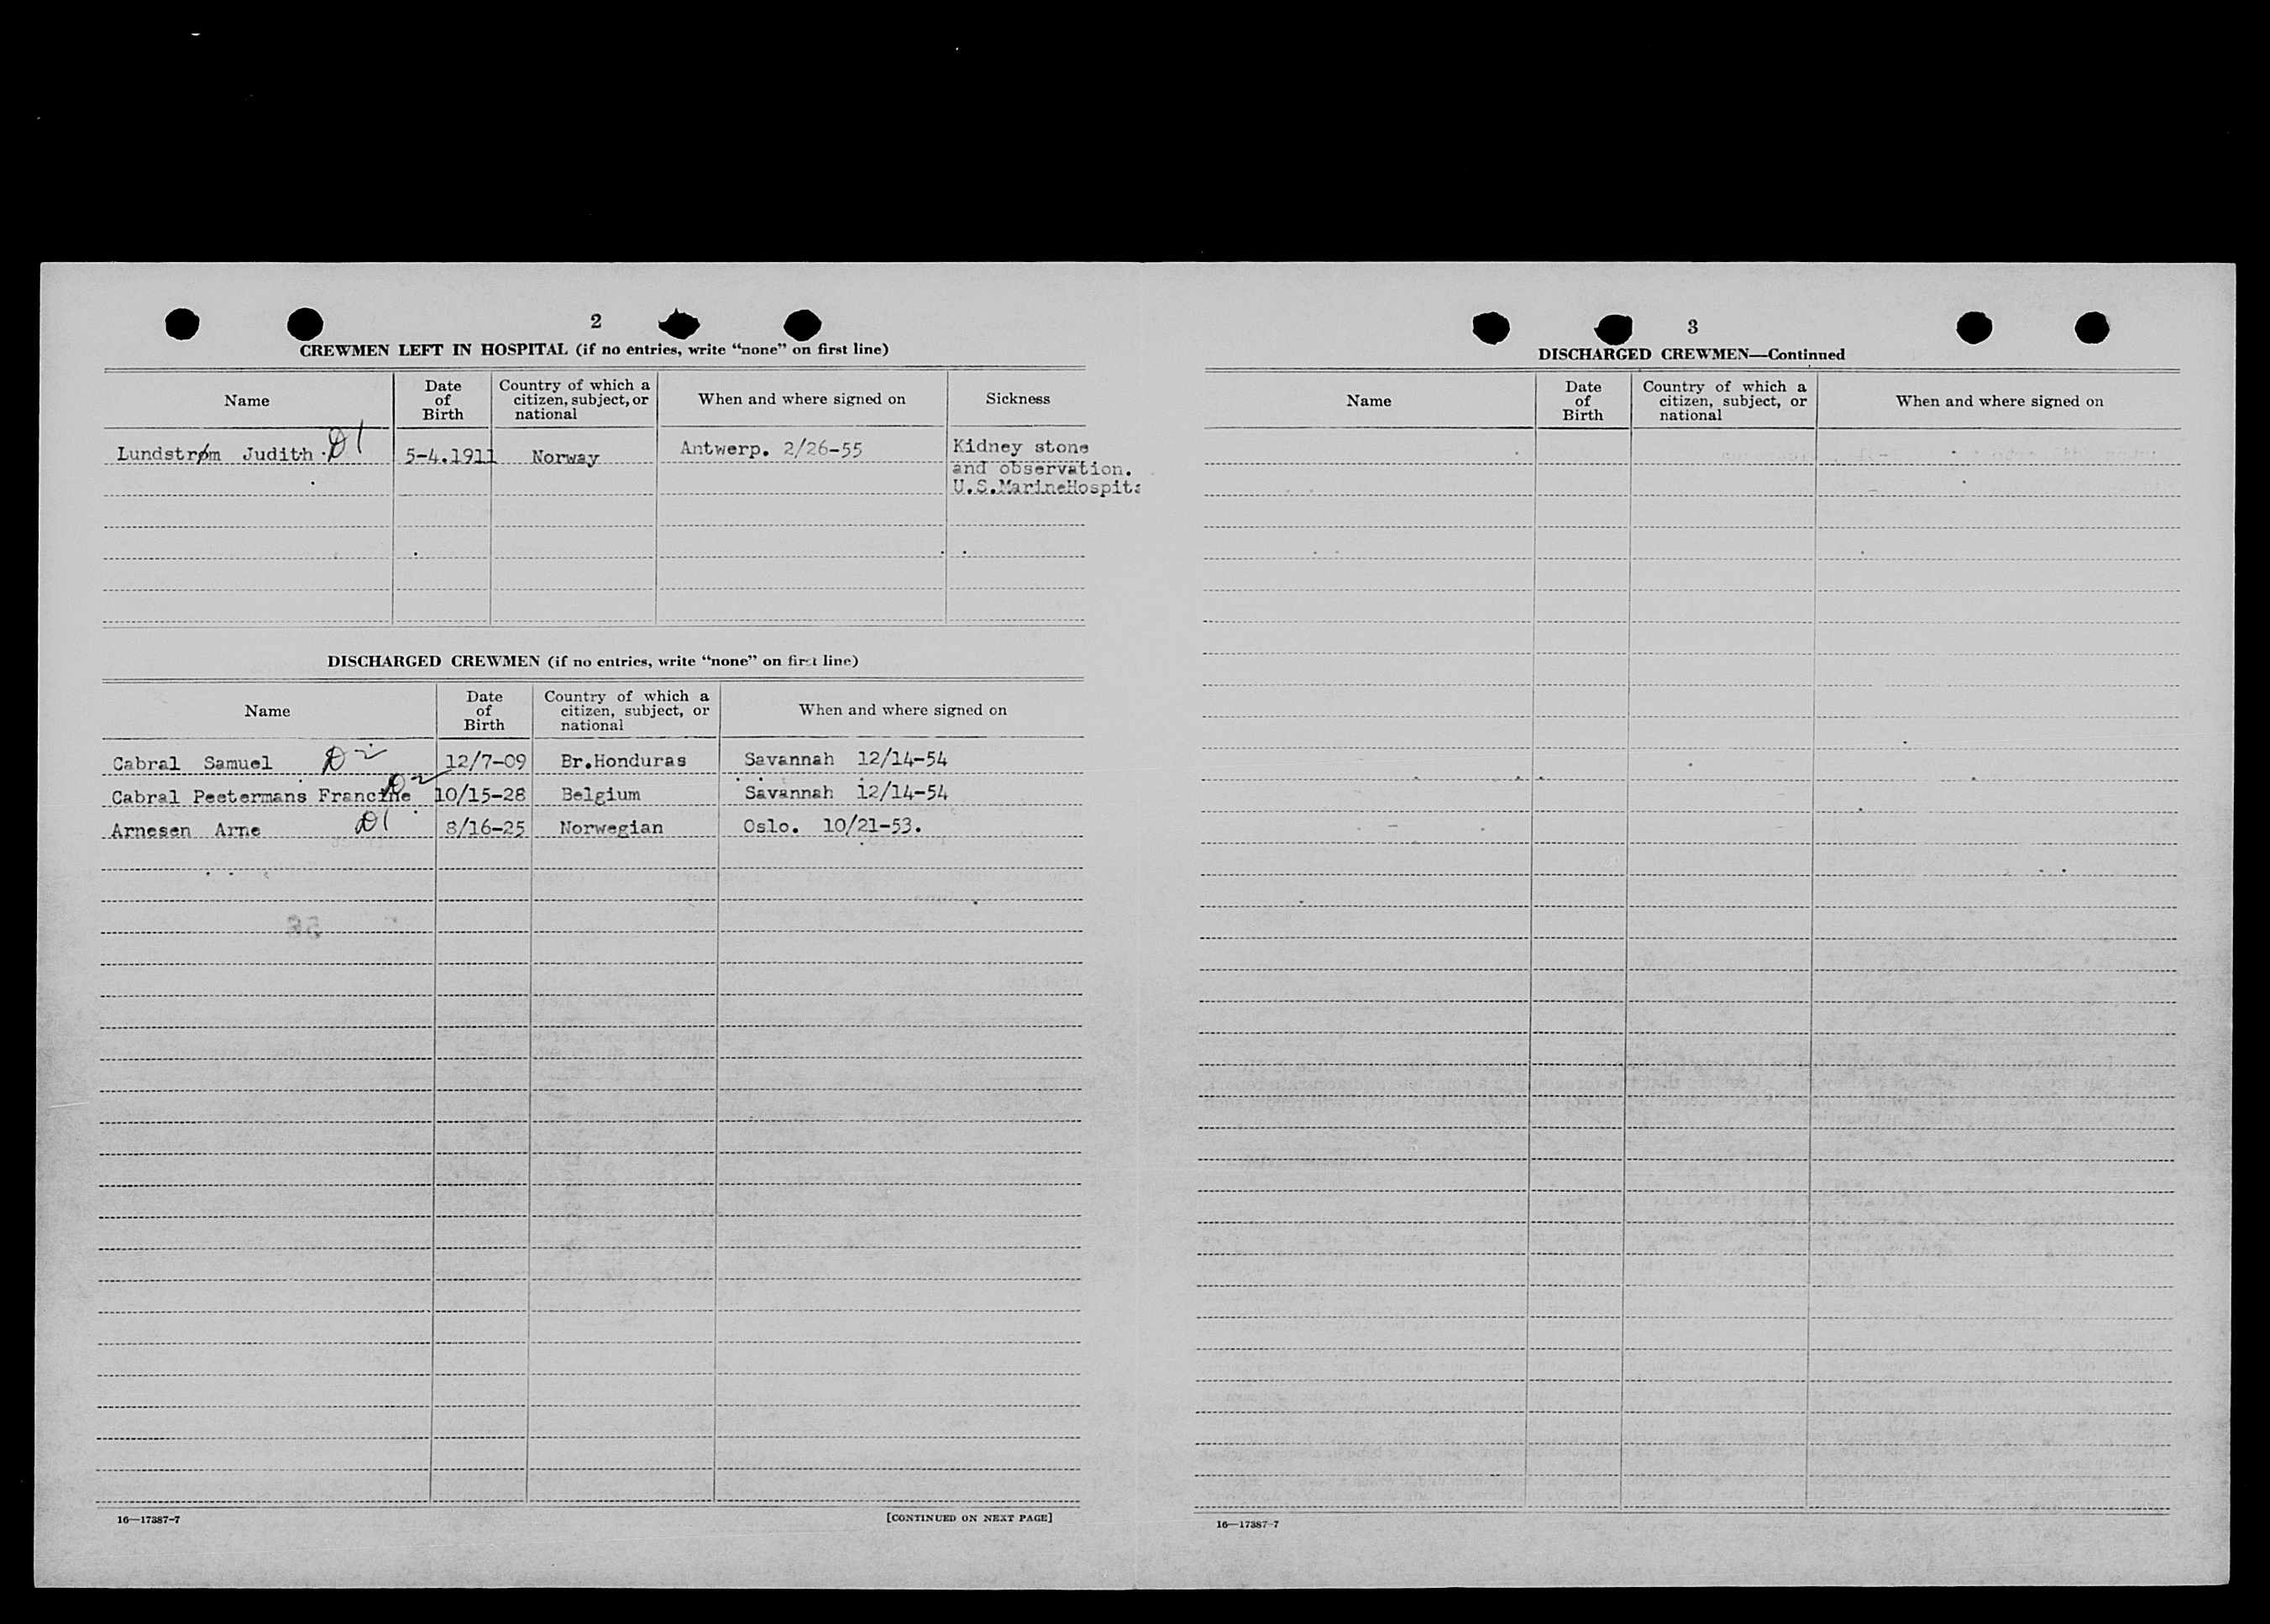 2
CREWMEN LEFT IN HOSPITAL (if no entries, write “none” on first line)
Name
Date of Birth
Country of which a citizen, subject, or national
When and where signed on
Sickness
Lundstrøm Judith D1 5-4.1911 Norway Antwerp. 2/26-55 Kidney stone
and observation.
U.S.MarineHospita
DISCHARGED CREWMEN (if no entries, write “none” on first line)
Name
Date of Birth
Country of which a citizen, subject, or national
When and where signed on
Cabral Samuel D2 12/7-09 Br.Honduras Savannah 12/14-54
Cabral Peetermans Francine D2 10/15-28 Belgium Savannah 12/14-54
Arnesen Arne D1 8/16-25 Norwegian Oslo. 10/21-53.
16—17387-7
[CONTINUED ON NEXT PAGE]
3
DISCHARGED CREWMEN—Continued
Name
Date of Birth
Country of which a citizen, subject, or national
When and where signed on
16—17387-7